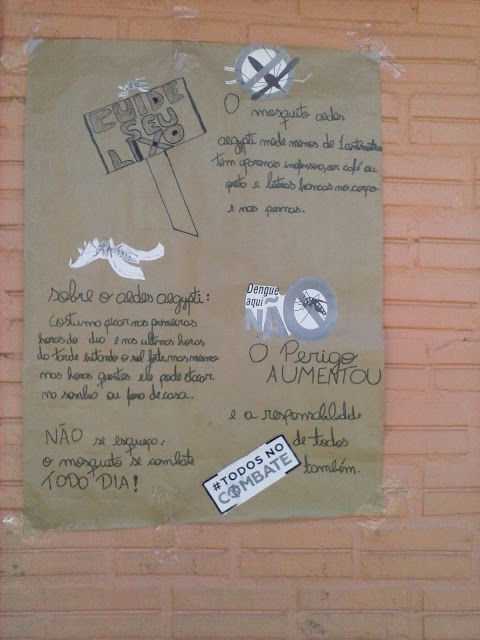 CUIDE
SEU
LIXO
O mosquito aedes
aegypti mede menos de 1 centímetro
tem aparencia inofensiva, cor café ou
preto e listras brancas no corpo
e nas pernas.
sobre o aedes aegypti:
costuma picar nas primeiras
horas do dia e nas ultimas horas
da tarde evitando o sol forte, mas mesmo
nas horas quentes ele pode atacar
na sombra ou fora de casa.
NÃO se esqueça:
o mosquito se combate
TODO DIA!
Dengue
aqui
NÃO
O Perigo
AUMENTOU
e a responsabilidade
de todos
também.
#TODOS NO
COMBATE